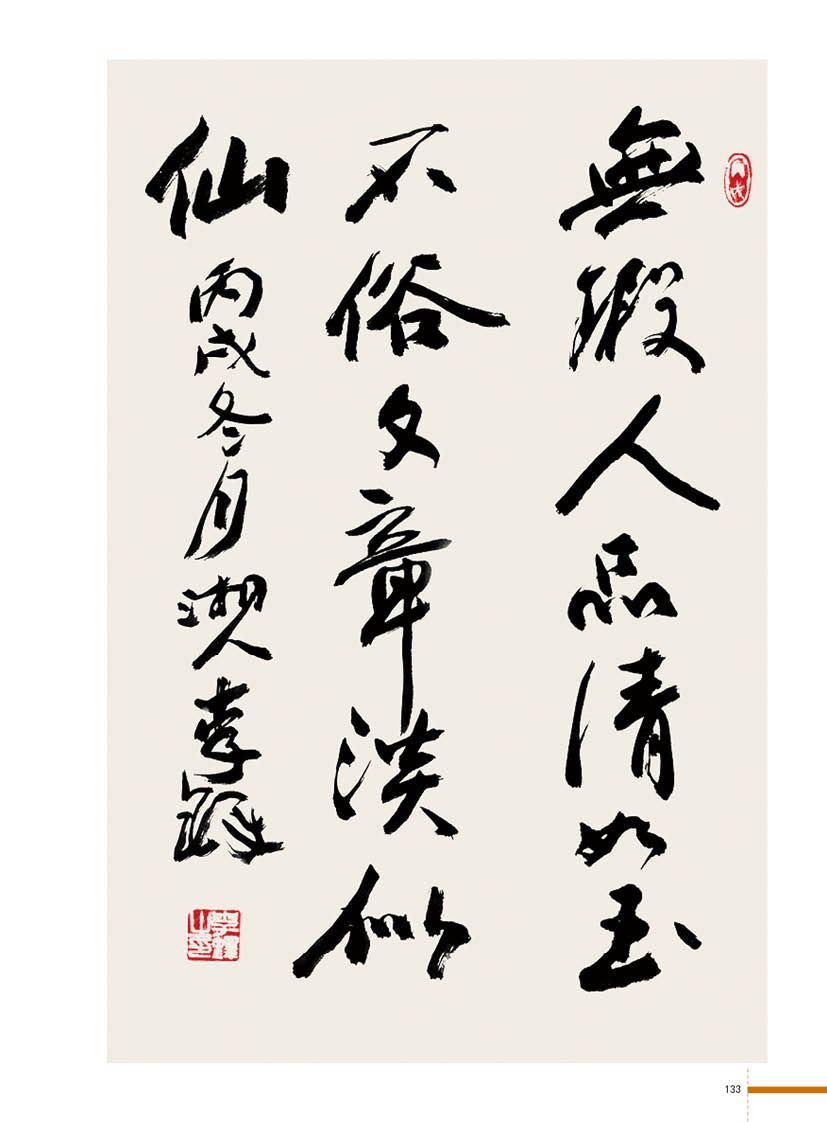 無瑕人品清如玉
不俗文章淡似
仙
丙戌冬月湘人李
133